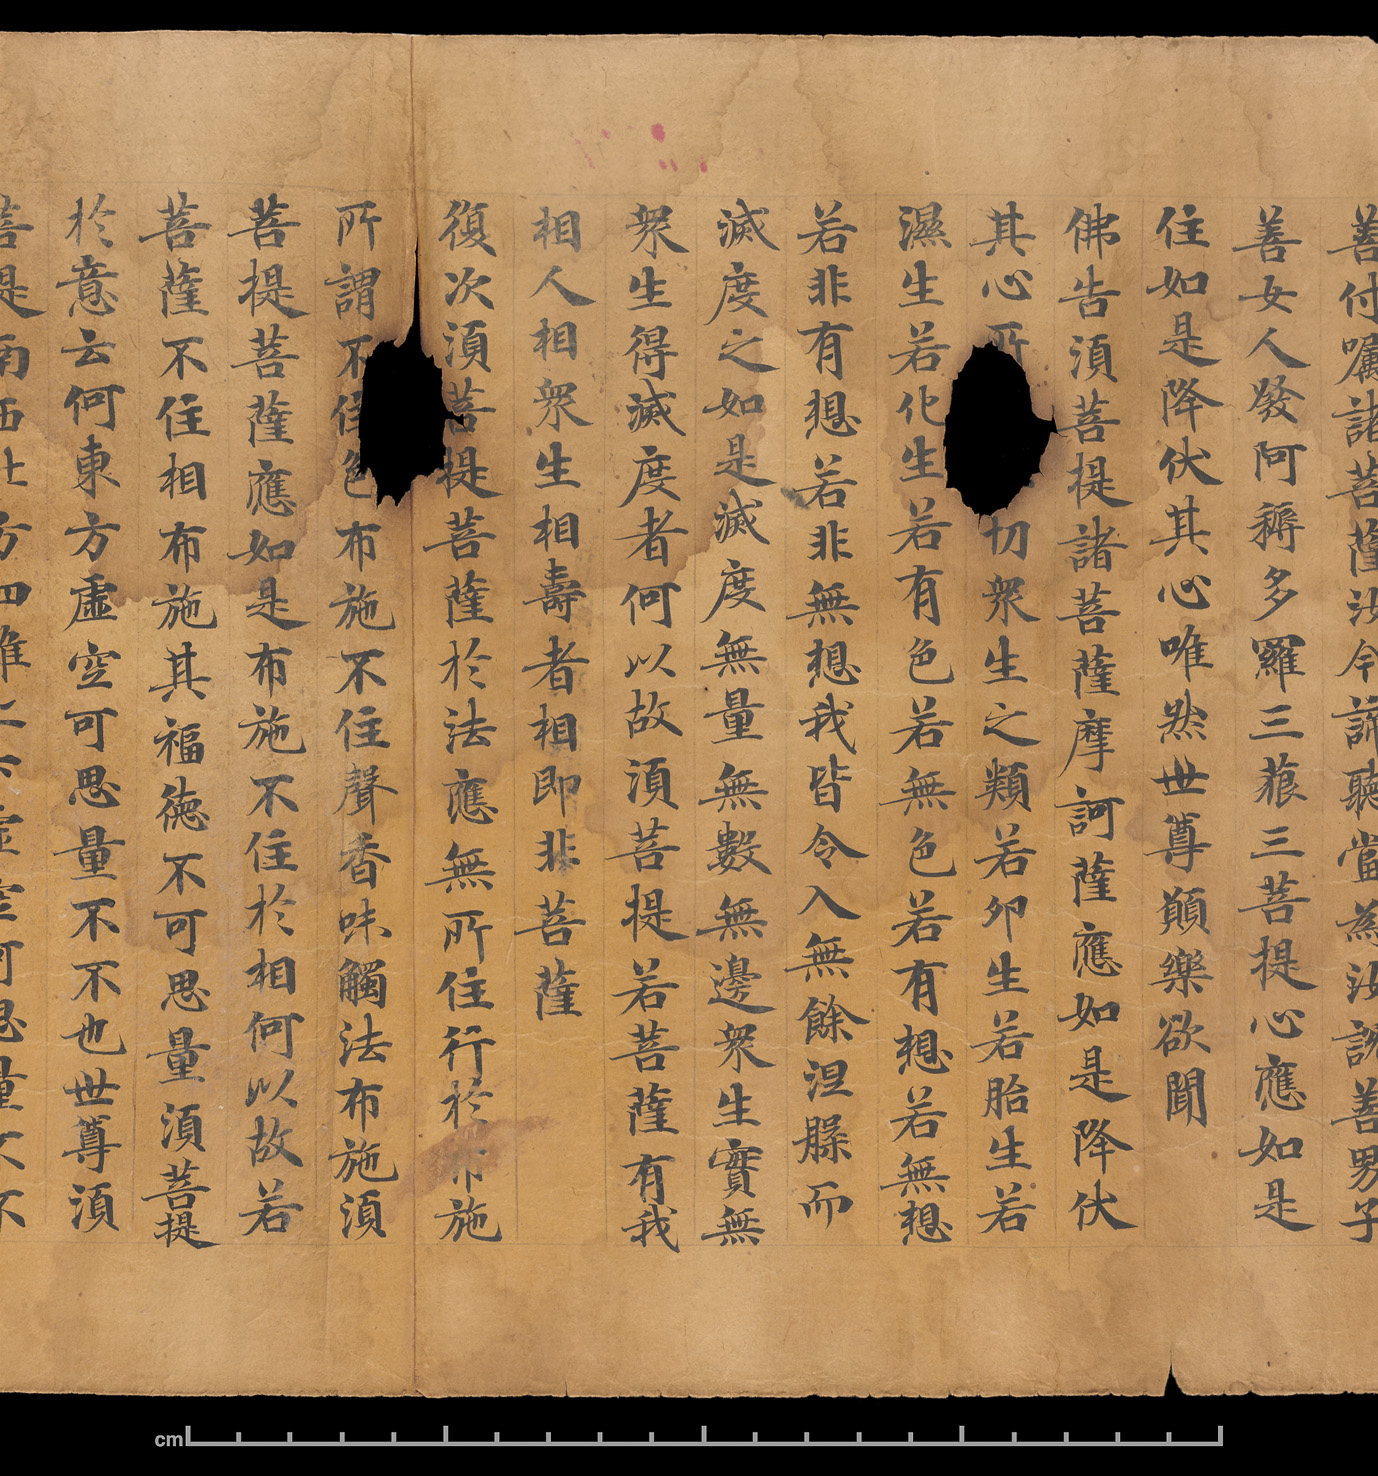 善付囑諸菩薩汝今諦聽當為汝說善男子
善女人發阿耨多羅三藐三菩提心應如是
住如是降伏其心唯然世尊願樂欲聞
佛告須菩提諸菩薩摩訶薩應如是降伏
其心所切眾生之類若卵生若胎生若
濕生若化生若有色若無色若有想若無想
若非有想若非無想我皆令入無餘涅槃而
滅度之如是滅度無量無數無邊眾生實無
眾生得滅度者何以故須菩提若菩薩有我
相人相眾生相壽者相即非菩薩
復次須菩提菩薩於法應無所住行於布施
所謂不住色布施不住聲香味觸法布施須
菩提菩薩應如是布施不住於相何以故若
菩薩不住相布施其福德不可思量須菩提
於意云何東方虛空可思量不不也世尊須
菩提南西北方四維上下虛空可思量不不